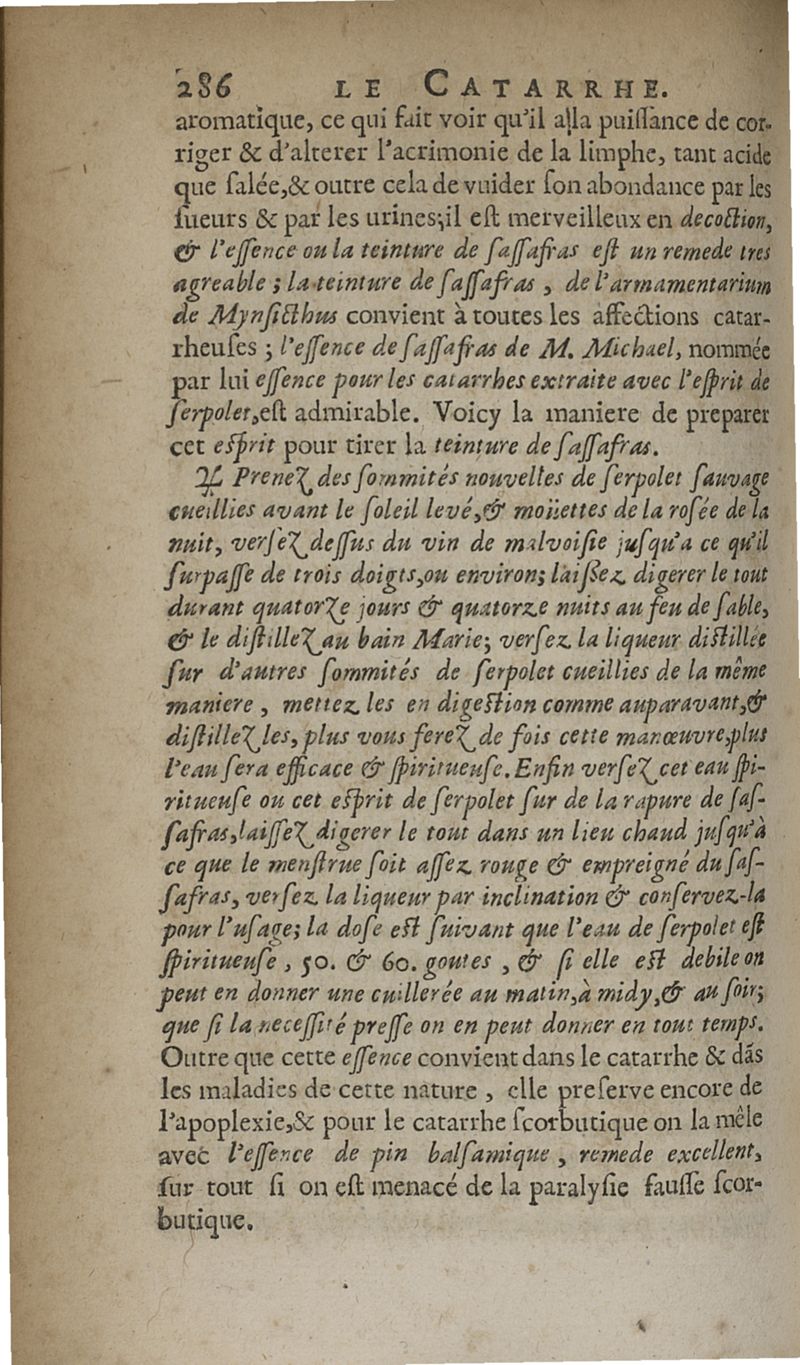 286 LE CATARRHE.
aromatique, ce qui fait voir qu'il a la puiſſance de cor-
riger & d'alterer l'acrimonie de la limphe, tant acide
que ſalée,& outre cela de vuider ſon abondance par les
ſueurs & par les urines;il eſt merveilleux en decoction,
& l'eſſence ou la teinture de ſaſſafras eſt un remede tres
agreable ; la teinture de ſaſſafras , de l'armamentarium
de Mynſicthus convient à toutes les affections catar-
rheuſes ; l'eſſence de ſaſſafras de M. Michael, nommée
par lui eſſence pour les catarrhes extraite avec l'eſprit de
ſerpolet,eſt admirable. Voicy la maniere de preparer
cet eſprit pour tirer la teinture de ſaſſafras.
♃ Prenez des ſommités nouvelles de ſerpolet ſauvage
cueillies avant le ſoleil levé,& moüettes de la roſée de la
nuit, verſez deſſus du vin de malvoiſie juſqu'a ce qu'il
ſurpaſſe de trois doigts,ou environ; laiſſez digerer le tout
durant quatorze jours & quatorze nuits au feu de ſable,
& le diſtillez au bain Marie; verſez la liqueur diſtillée
ſur d'autres ſommités de ſerpolet cueillies de la même
maniere , mettez les en digeſtion comme auparavant,&
diſtillez les, plus vous ferez de fois cette manœuvre,plus
l'eau ſera efficace & ſpiritueuſe. Enfin verſez cet eau ſpi-
ritueuſe ou cet eſprit de ſerpolet ſur de la rapure de ſaſ-
ſafras,laiſſez digerer le tout dans un lieu chaud juſqu'à
ce que le menſtrue ſoit aſſez rouge & empreigné du ſaſ-
ſafras, verſez la liqueur par inclination & conſervez-la
pour l'uſage; la doſe eſt ſuivant que l'eau de ſerpolet eſt
ſpiritueuſe , 50. & 60. goutes , & ſi elle eſt debile on
peut en donner une cuillerée au matin,à midy,& au ſoir;
que ſi la neceſſité preſſe on en peut donner en tout temps.
Outre que cette eſſence convient dans le catarrhe & dãs
les maladies de cette nature , elle preſerve encore de
l'apoplexie,& pour le catarrhe ſcorbutique on la mêle
avec l'eſſence de pin balſamique , remede excellent,
ſur tout ſi on eſt menacé de la paralyſie fauſſe ſcor-
butique.